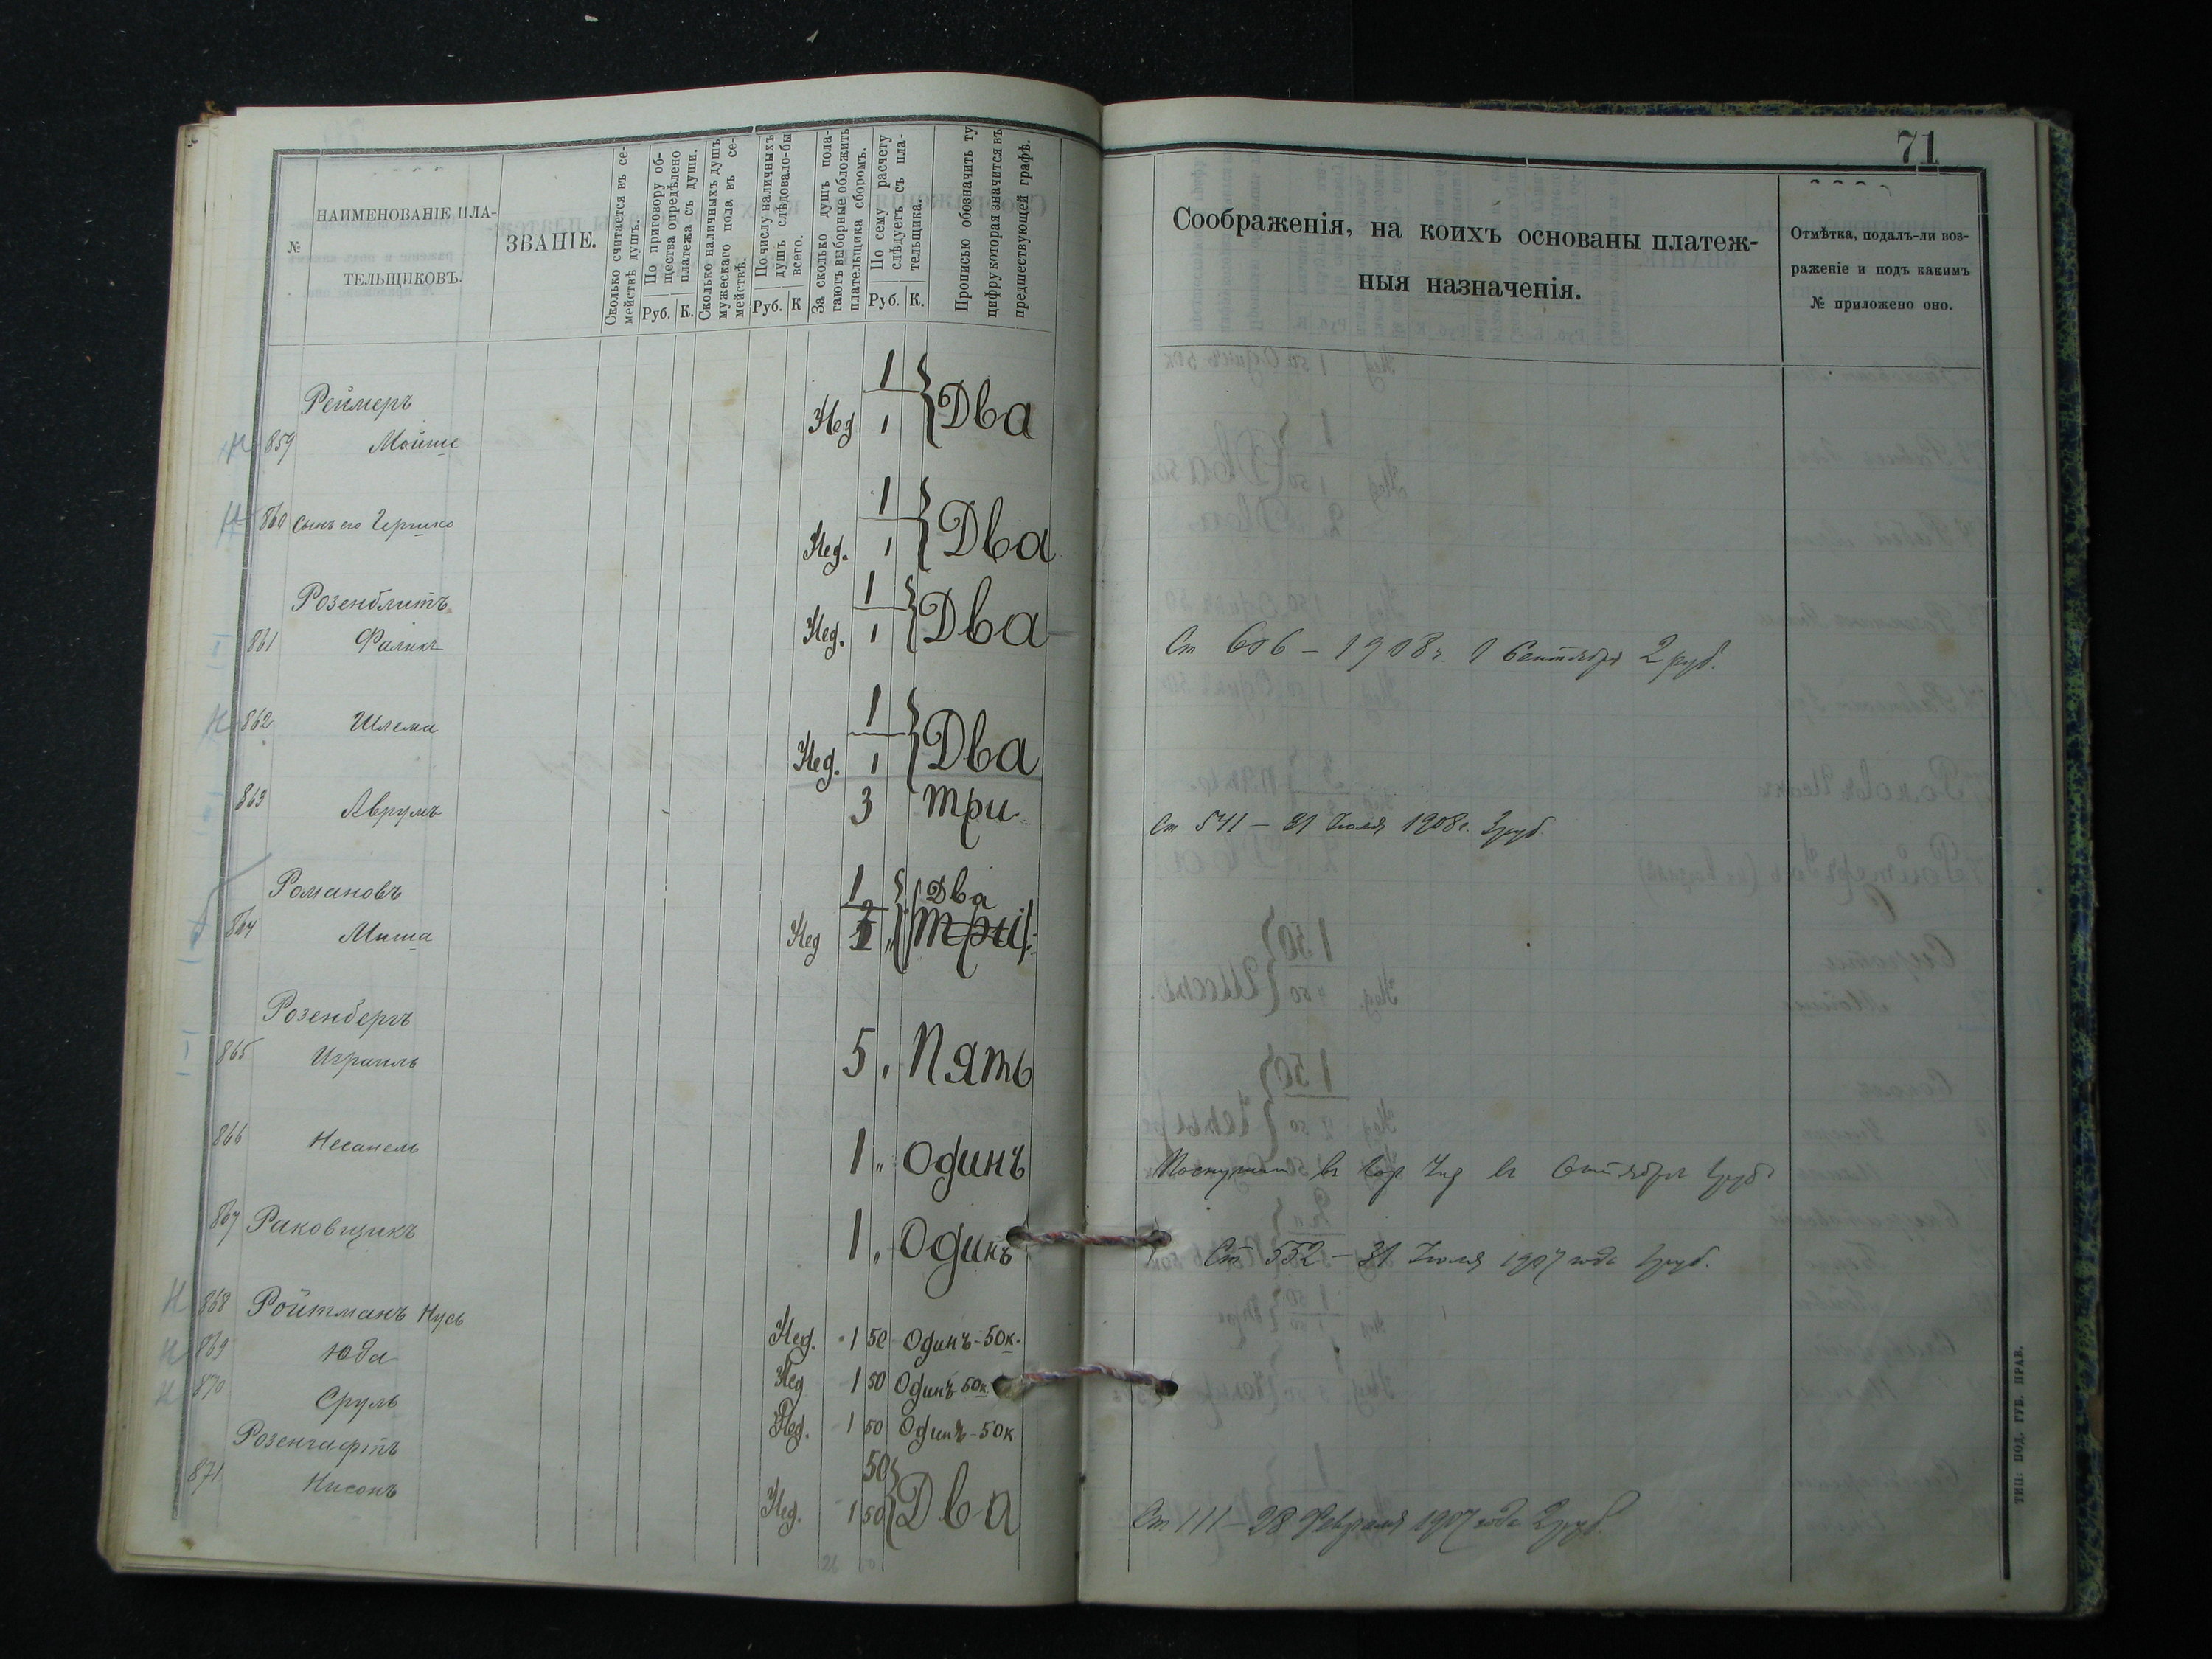 71
№
НАИМЕНОВАНІЕ ПЛА-
ТЕЛЬЩИКОВЪ.
ЗВАНІЕ.
Сколько считается въ се-
мействѣ душъ.
По приговору об-
щества опредѣлено
платежа съ души.
Руб. К.
Сколько наличныхъ душъ
мужескаго пола въ се-
мействѣ.
По числу наличныхъ
душъ слѣдовало-бы
всего.
Руб. К
За сколько душъ пола-
гаютъ выборные обложить
плательщика сборомъ.
По сему расчету
слѣдуетъ съ пла-
тельщика.
Руб. К.
Прописью обозначить ту
цифру которая значится въ
предшествующей графѣ.
Соображенія, на коихъ основаны платеж-
ныя назначенія.
Отмѣтка, подалъ-ли воз-
раженіе и подъ какимъ
№ приложено оно.
Реймеръ 1
Н 859 Мойше Нед 1 Два
1
Н 860 Сынъ его Гершко Нед. 1 Два
Розенблитъ 1
861 Фаликъ Нед. 1 Два Ст 606 – 1908 г. 1 Сентября 2 руб.
1
Н 862 Шлема Нед. 1 Два
863 Аврумъ 3 Три Ст 541 – 31 Іюля 1908 г. 3 руб.
Романовъ 1 Два
864 Миша Нед 2 " Три
Розенбергъ
865 Израиль 5 " Пять
866 Несанель 1 " Одинъ Поступил в 1 руб
867 Раковщикъ 1 " Одинъ Ст 552 – 31 Іюля 1907 года 1 руб.
Н 868 Ройтманъ Нусь Нед. 1 50 Одинъ-50к.
Н 869 Юда Нед 1 50 Одинъ 50к
Н 870 Сруль Нед. 1 50 Одинъ-50к
Розенгафтъ 50
871 Нисонъ Нед. 1 50 Два Ст 111 – 28 Февраля 1907 года 2 руб.
ТИП: ПОД. ГУБ. ПРАВ.